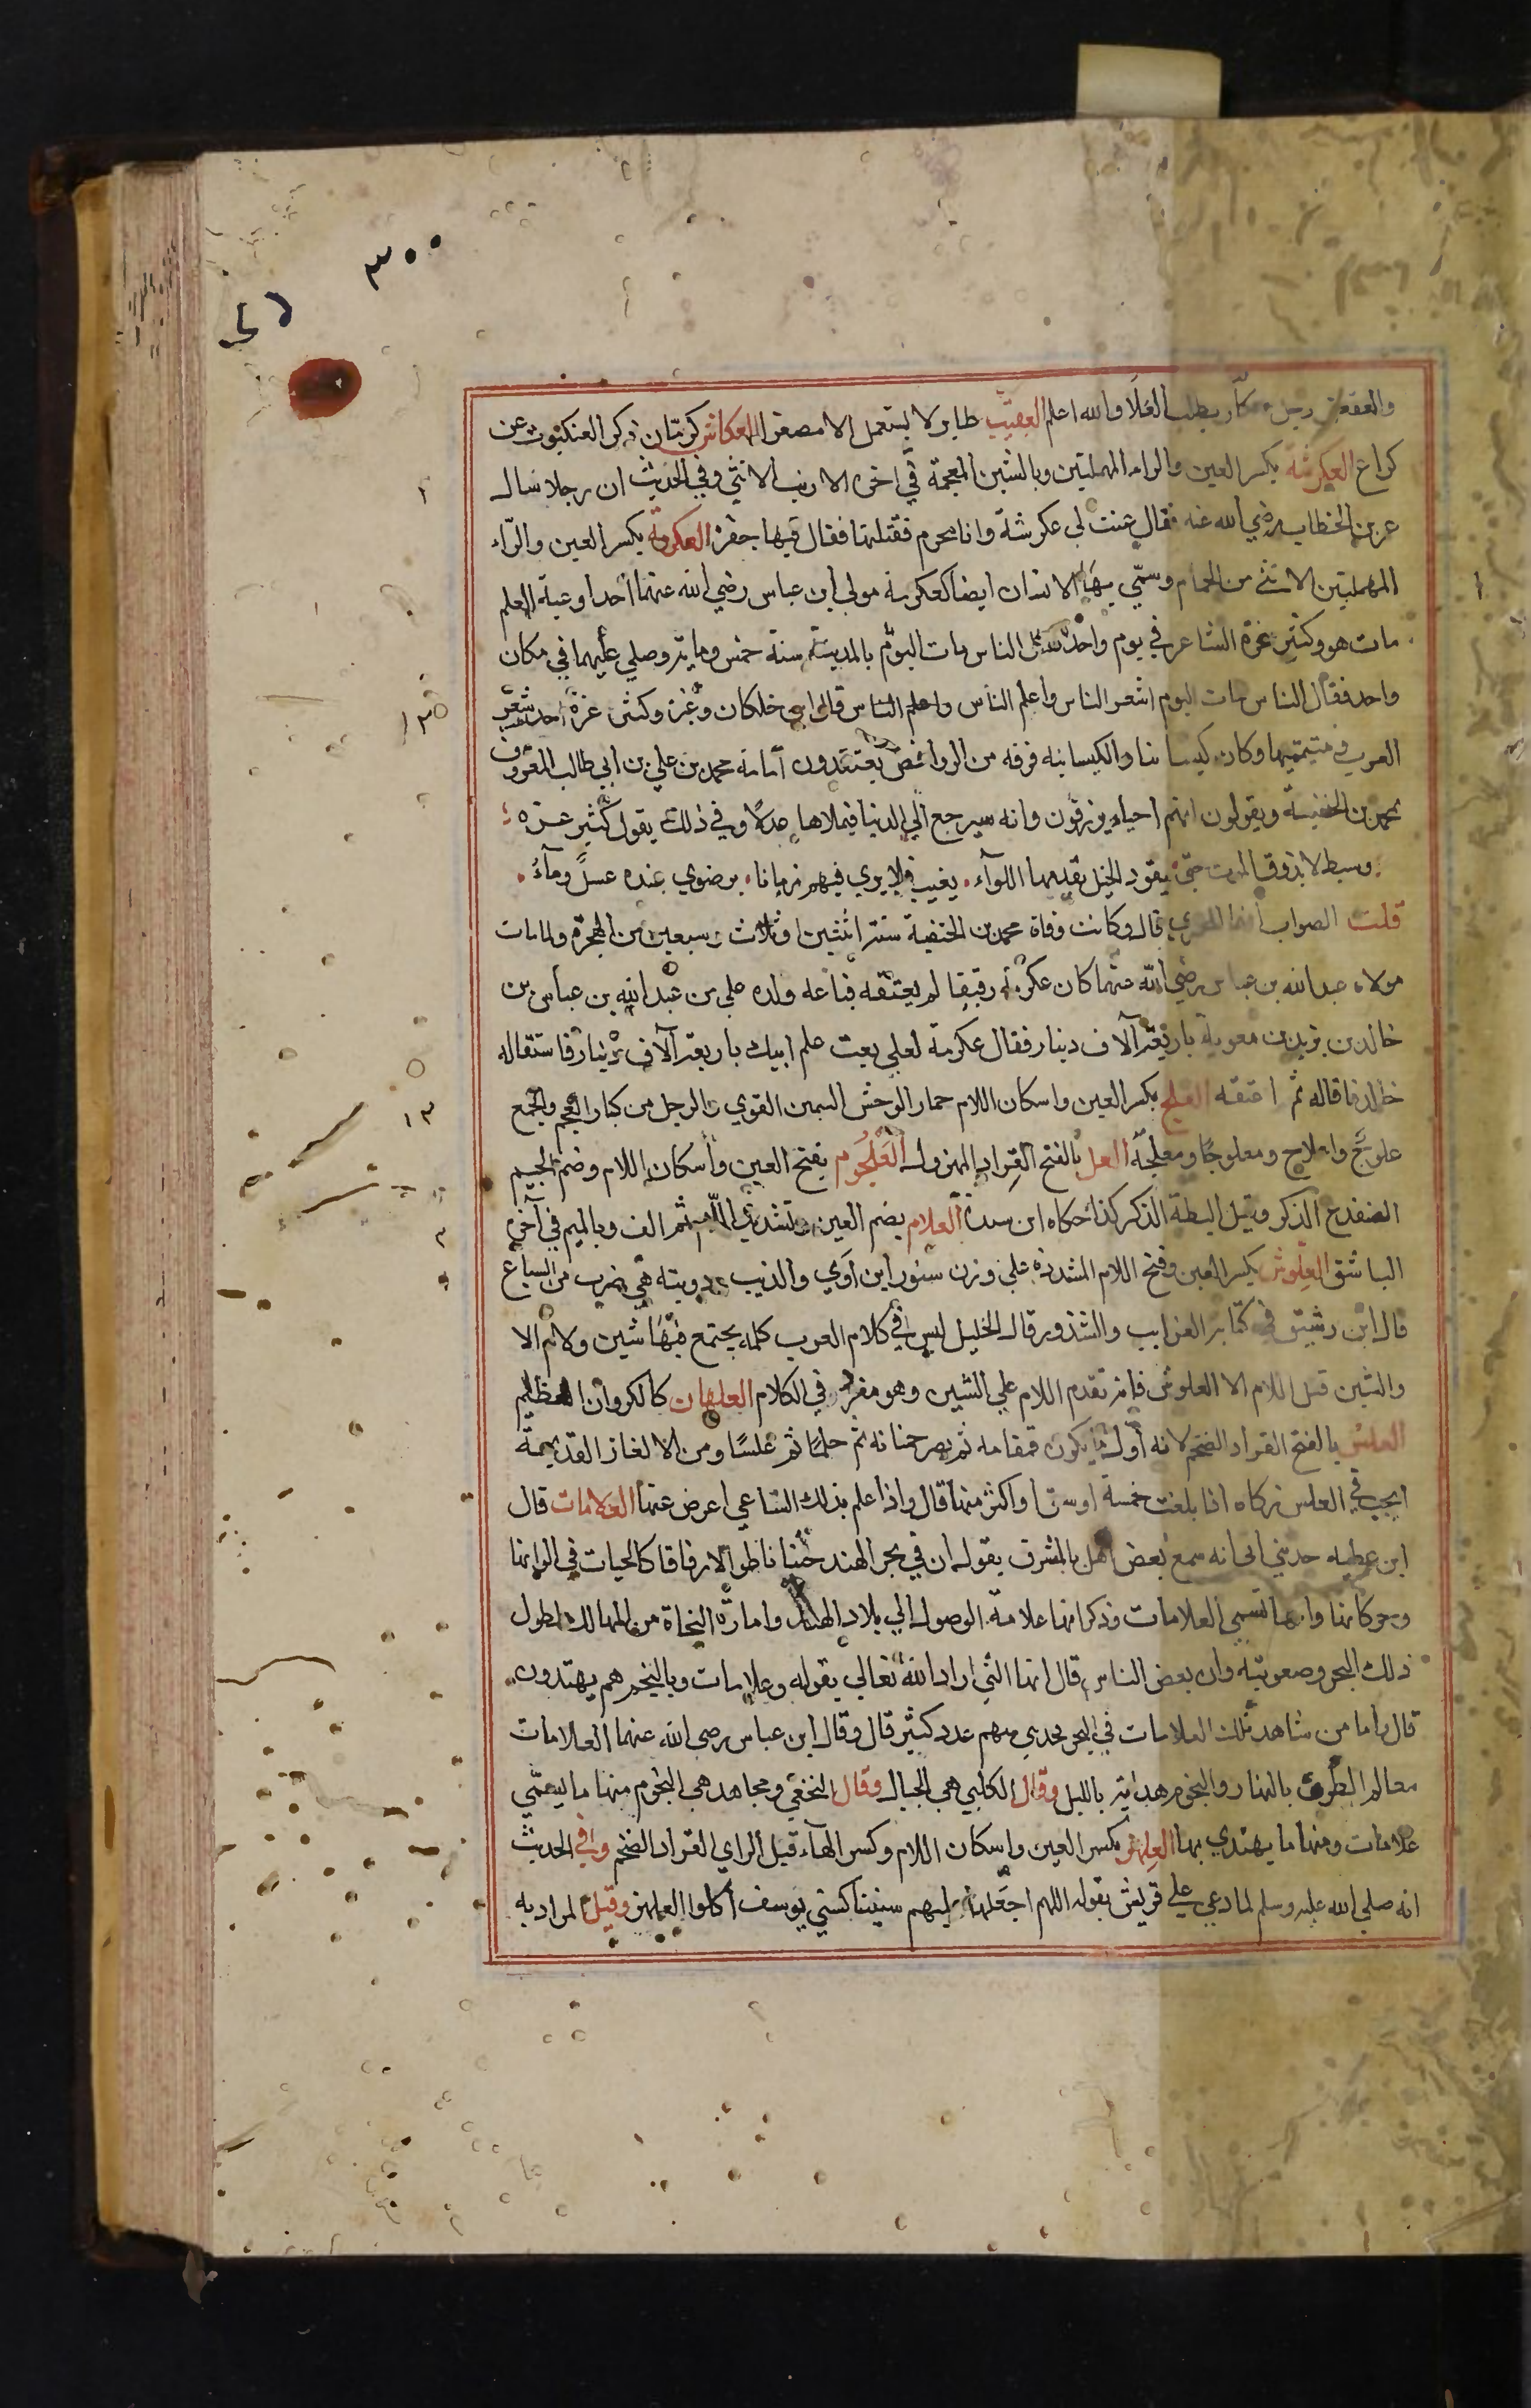 ٣٠٠
والعقعق رجل يطلب العلا والله اعلم العقيب طاير لا يستعمل الا مصغرا العكاش كرمان ذكر العنكبوت عن
كراع العكرشة بكسر العين والراء المهملتين وبالشين المعجمة في اخره الارنب الانثي وفي الحديث ان رجلا سال
عمر بن الخطاب رضي الله عنه فقال عنت لي عكرشة وانا محرم فقتلتها فقال فيها جفرة العكرمة بكسر العين والراء
المهملتين الانثي من الحمام وسمي بها الانسان ايضا كعكرمة مولي ابن عباس رضي الله عنهما احد اوعية العلم
مات هو وكثير عزة الشاعر في يوم واحد الناس مات اليوم بالمدينة سنة خمس وماية وصلي عليهما في مكان
واحد فقال الناس مات اليوم اشعر الناس واعلم الناس واعلم الناس قال ابن خلكان وغيره وكثير عزة احد شعر
العرب ومتيميها وكان كيسانيا والكيسانيه فرقه من الروافض يعتقدون امامة محمد بن علي بن ابي طالب المعروف
بمحمد بن الحنفية ويقولون انهم احياء يرزقون وانه سيرجع الي الدنيا فيملاها عدلا وفي ذلك يقول كثير عزه
وسبط لا يذوق الموت حتي يقود الخيل يقدمها اللوآء يغيب فلا يري فيهم زمانا برضوي عنده عسل ومآء
قلت الصواب قال وكانت وفاة محمد بن الحنفية سنة اثنتين او ثلاث وسبعين من الهجرة ولما مات
مولاه عبد الله بن عباس رضي الله عنهما كان عكرمة رقيقا لم يعتقه فباعه ولده علي بن عبد الله بن عباس من
خالد بن يزيد بن معوية باربعة آلاف دينار فقال عكرمة لعلي بعت علم ابيك باربعة آلاف دينار فاستقاله
خالد فاقاله ثم اعتقه العلج بكسر العين واسكان اللام حمار الوحش السمين القوي والرجل من كبار العجم والجمع
علوج واعلاج ومعلوجا ومعلجة العل بالفتح القراد المهزول العلجوم بفتح العين واسكان اللام وضم الجيم
الضفدع الذكر وقيل البطة الذكر كذا حكاه ابن سيدة العلام بضم العين وتشديد اللام ثم الف وبالميم في آخره
الباشق العلوش بكسر العين وفتح اللام المشددة علي وزن سنور ابن آوي والذيب ودويبة هي ضرب من السباع
قال ابن رشيق في كتابه الغرايب والشذوذ قال الخليل ليس في كلام العرب كلمة يجتمع فيها شين ولام الا
والشين قبل اللام الا العلوش فانه تقدم اللام علي الشين وهو مفرد في الكلام العلهان كالكروان الظليم
العلس بالفتح القراد الضخم لانه اول ما يكون قمقامه ثم يصير حمنانه ثم حلما ثم علسا ومن الالغاز القديمة
ايجب في العلس زكاه اذا بلغت خمسة اوسق او اكثر منها قال واذا علم بذلك الساعي اعرض عنها العلامات قال
ابن عطيه حدثني ابي انه سمع بعض اهل بالمشرق يقول ان في بحر الهند حيتانا طوالا رقاقا كالحيات في الوانها
وحركاتها وانها تسمي العلامات وذكر انها علامة الوصول الي بلاد الهند وامارة النجاة من المهالك لطول
ذلك البحر وصعوبته وان بعض الناس قال انها التي اراد الله تعالي بقوله وعلامات وبالنجم هم يهتدون
قال واما من شاهد تلك العلامات في البحر فحدثني منهم عدد كثير قال وقال ابن عباس رضي الله عنهما العلامات
معالم الطرق بالنهار والنجوم هداية بالليل وقال الكلبي هي الجبال وقال النخعي ومجاهد هي النجوم منها ما يسمي
علامات ومنها ما يهتدي بها العلهز بكسر العين واسكان اللام وكسر الهآء قبل الزاي القراد الضخم وفي الحديث
انه صلي الله عليه وسلم لما دعي علي قريش بقوله اللهم اجعلها عليهم سنينا كسني يوسف اكلوا العلهز وقيل المراد به